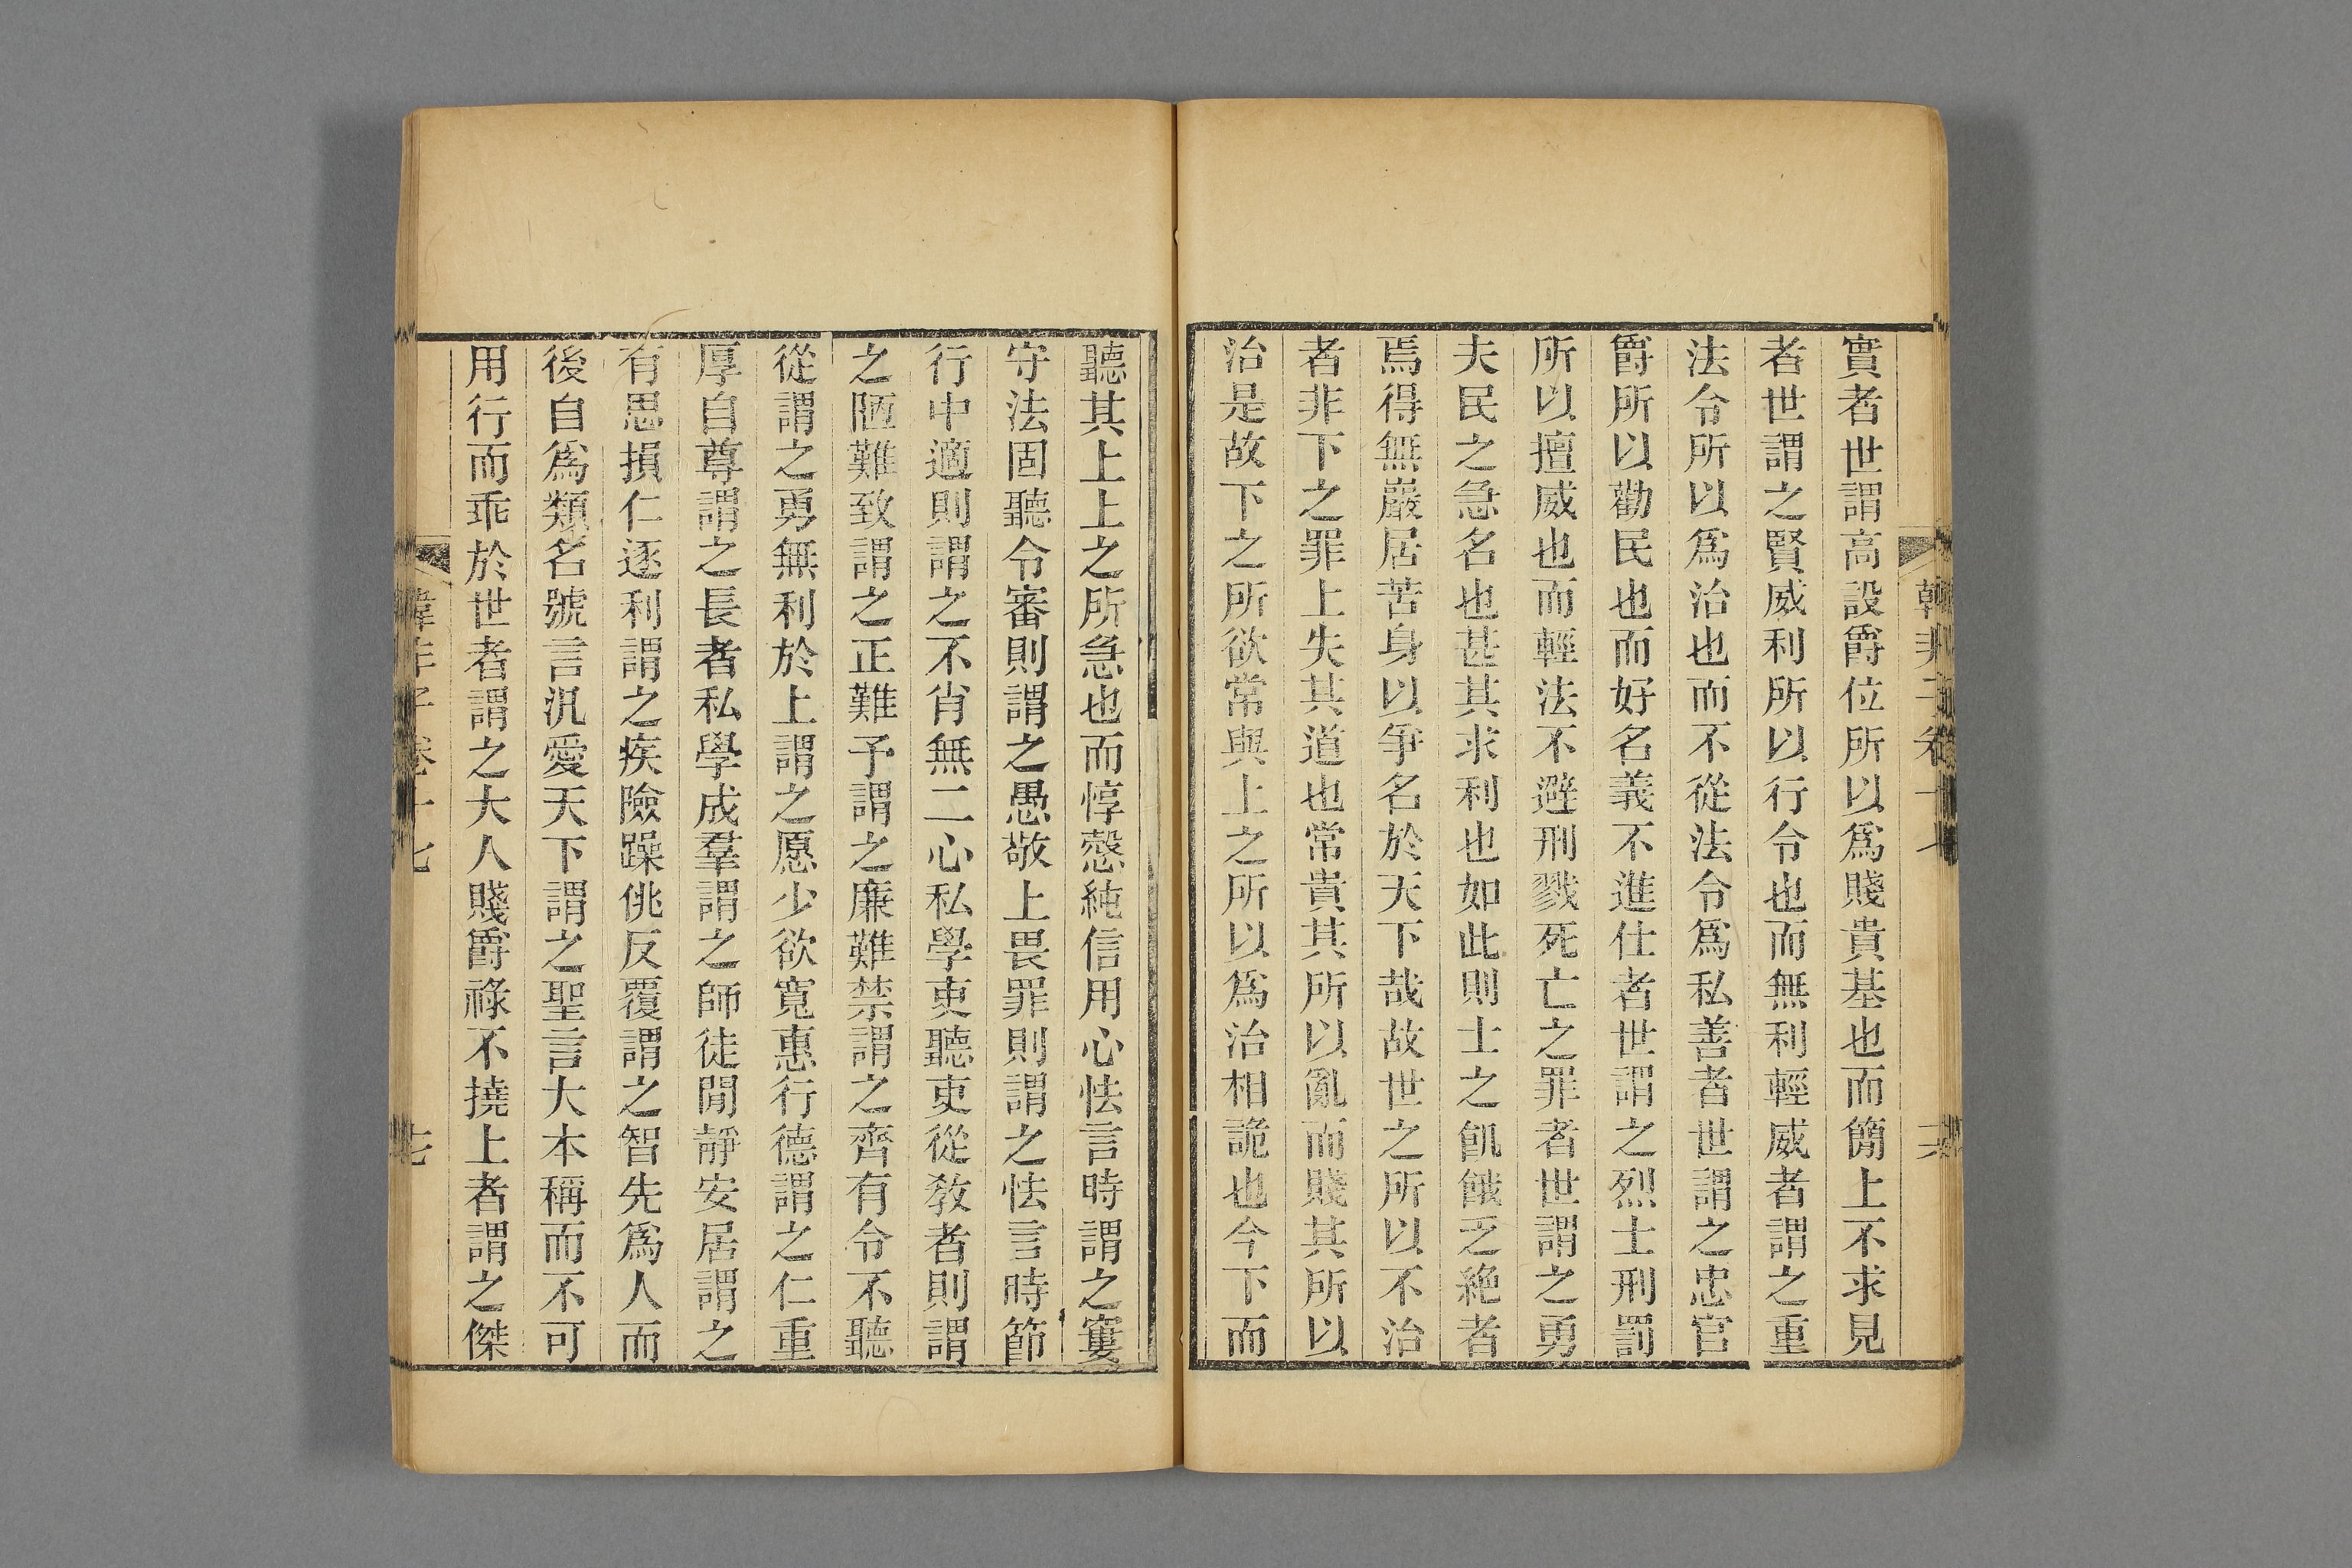 韓非子卷十七
十六
實者世謂高設爵位所以爲賤貴基也而簡上不求見
者世謂之賢威利所以行令也而無利輕威者謂之重
法令所以爲治也而不從法令爲私善者世謂之忠官
爵所以勸民也而好名義不進仕者世謂之烈士刑罰
所以擅威也而輕法不避刑戮死亡之罪者世謂之勇
夫民之急名也甚其求利也如此則士之飢餓乏絶者
焉得無巖居苦身以爭名於天下哉故世之所以不治
者非下之罪上失其道也常貴其所以亂而賤其所以
治是故下之所欲常與上之所以爲治相詭也今下而
聽其上上之所急也而惇慤純信用心怯言時謂之窶
守法固聽令審則謂之愚敬上畏罪則謂之怯言時節
行中適則謂之不肖無二心私學吏聽吏從敎者則謂
之陋難致謂之正難予謂之廉難禁謂之齊有令不聽
從謂之勇無利於上謂之愿少欲寬惠行德謂之仁重
厚自尊謂之長者私學成羣謂之師徒閒靜安居謂之
有思損仁逐利謂之疾險躁佻反覆謂之智先爲人而
後自爲類名號言汎愛天下謂之聖言大本稱而不可
用行而乖於世者謂之大人賤爵祿不撓上者謂之傑
韓非子卷十七
十七